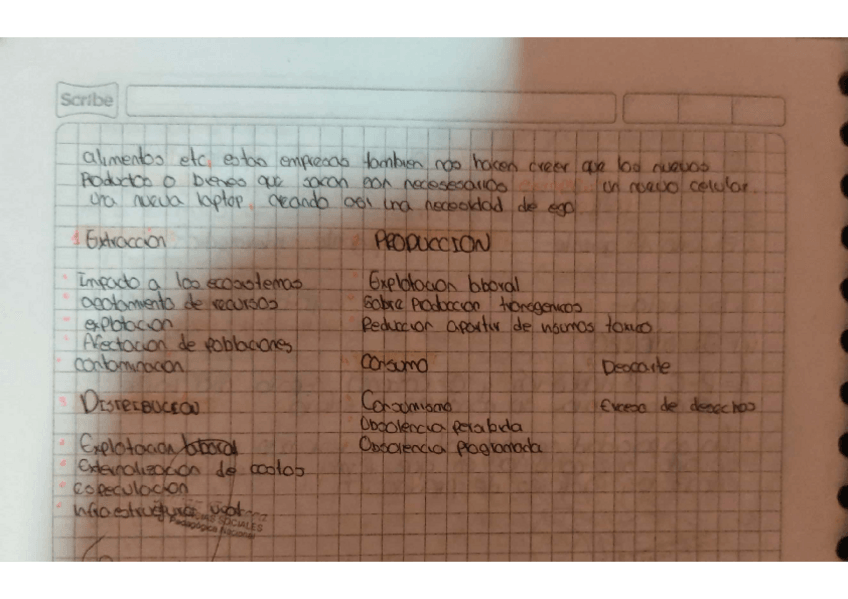 Scribe
alimentos etc, estas empresas tambien nos hacen creer que los nuevos
Productos o bienes que sacan son necesesarios un nuevo celular
una nueva laptop, creando asi una necesidad de ego
1 Extraccion
PRODUCCION
Impacto a los ecosistemas
agotamiento de recursos
explotacion
Afectacion de poblaciones
contaminacion
Explotacion laboral
Sobre Produccion transgenicos
Reduccion apartir de insumos toxico
Consumo
Consumismo
Obsolencia percibida
Obsolencia programada
Descarte
Exceso de desechos
3 DISTRIBUCION
Explotacion laboral
Externalización de costos
especulacion
infraestructura
SOCIALES
Pedagógica Nacional